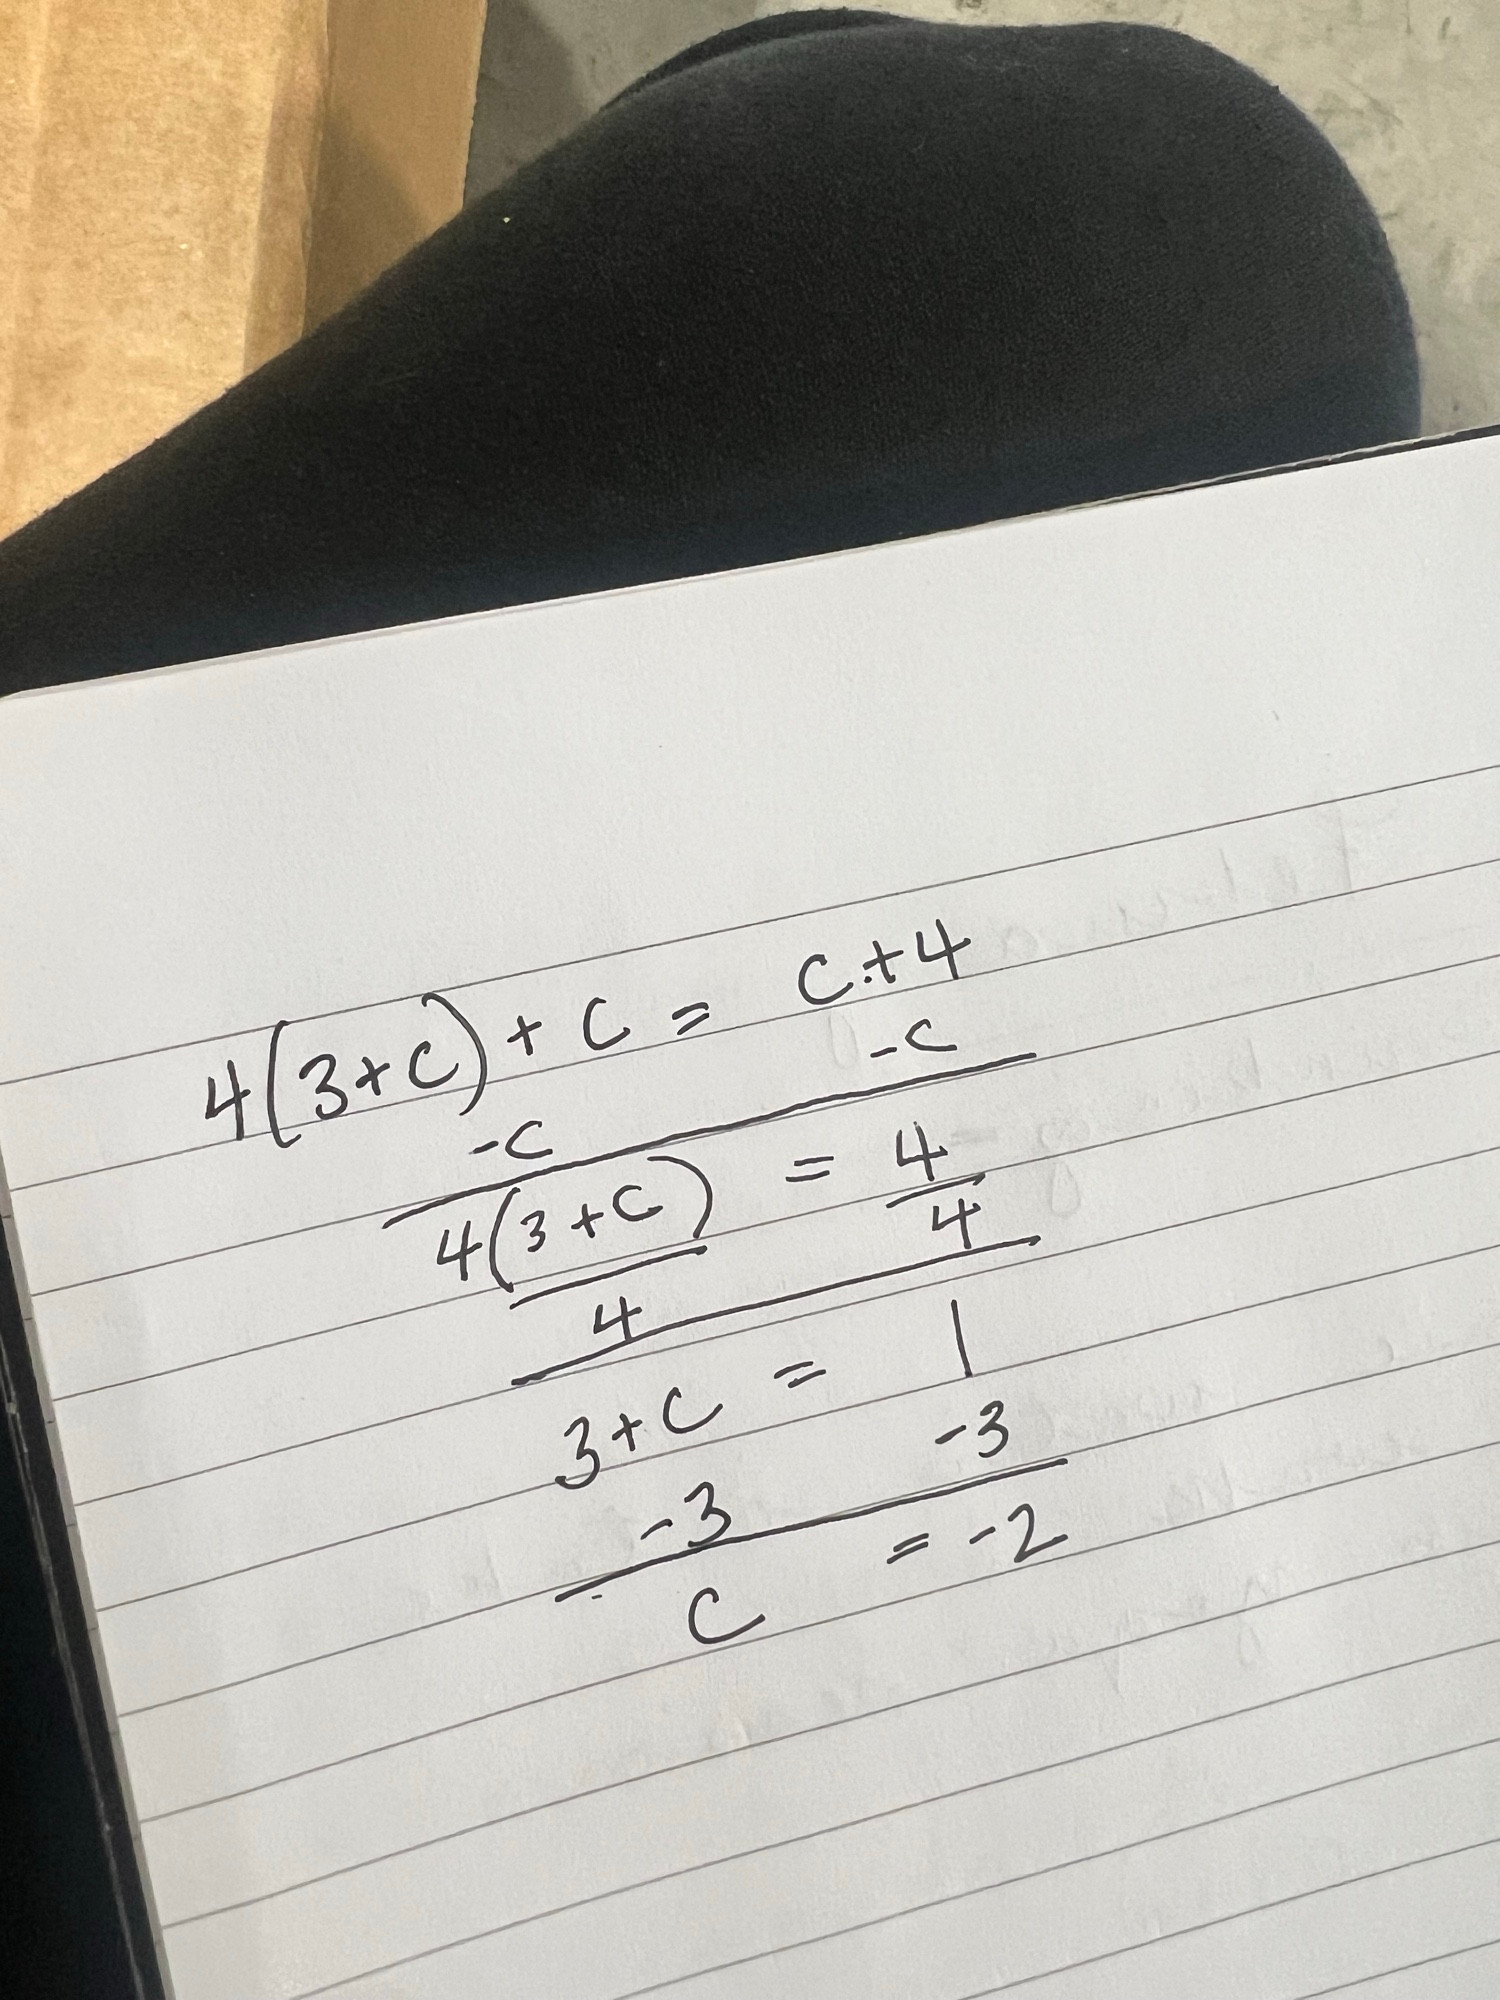 4(3+c) + c = c + 4
-c -c
4(3+c) = 4
4 4
3+c = 1
-3 -3
c = -2